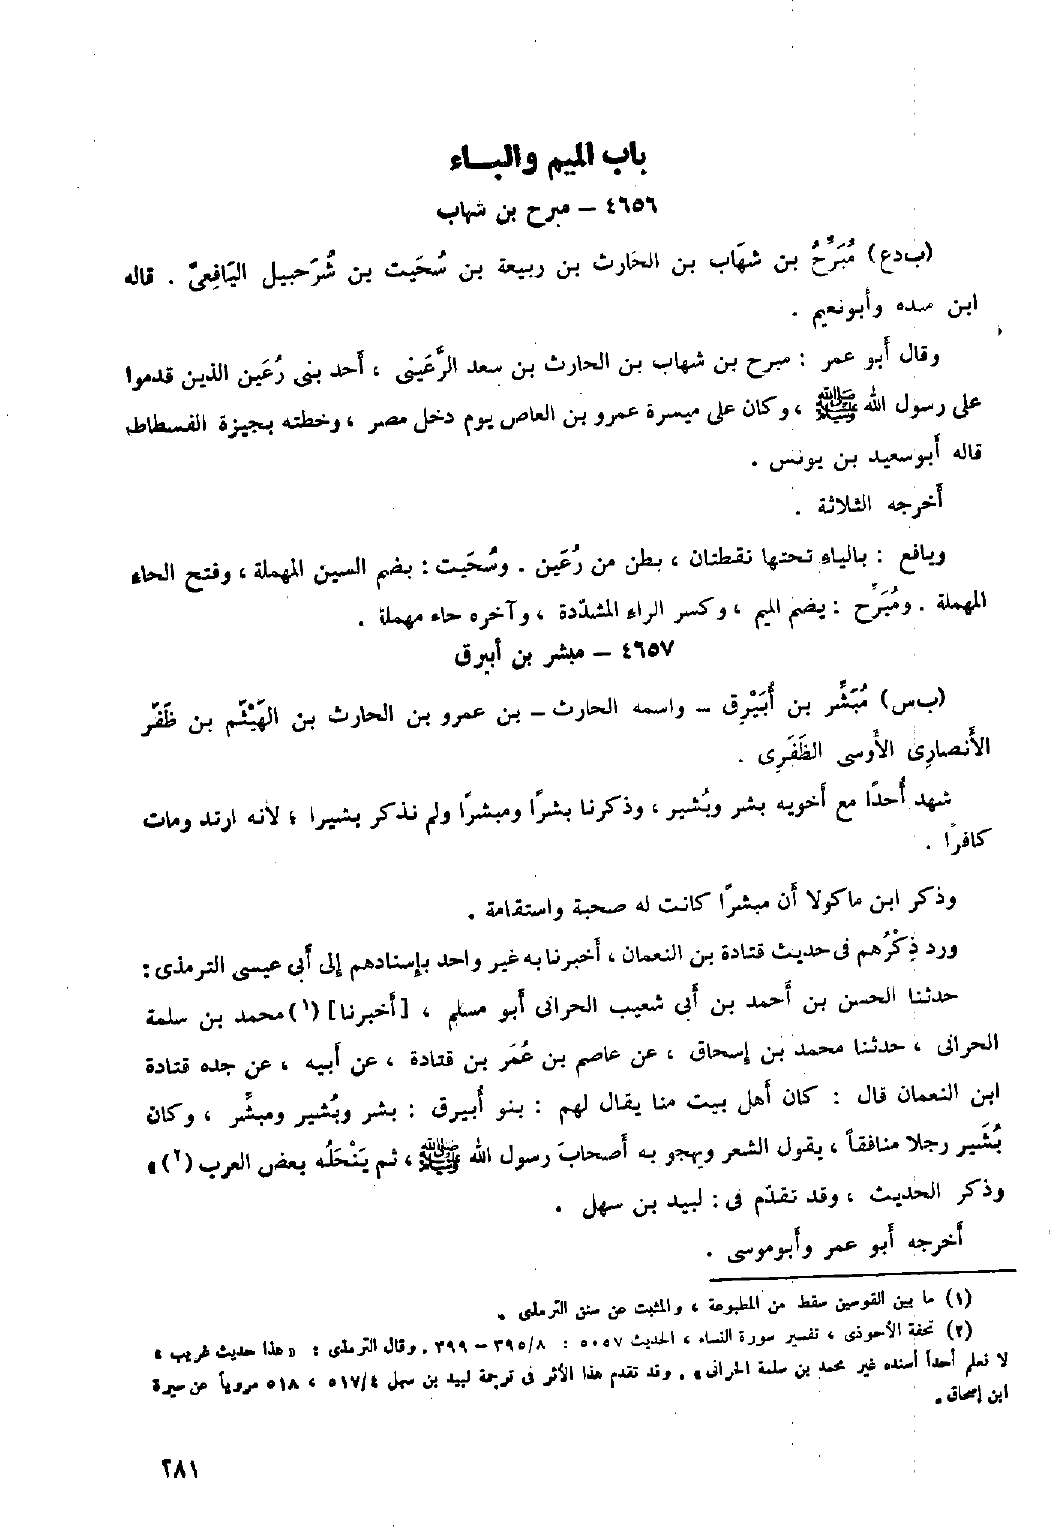 باب الميم والبـــاء
٤٦٥٦ – مبرح بن شهاب
(ب د ع) مُبَرِّحُ بن شهَاب بن الحَارث بن ربيعة بن سُحَيت بن شُرَحبيل اليَافِعىّ . قاله
ابن منده وأبونعيم .
وقال أَبو عمر : مبرح بن شهاب بن الحارث بن سعد الرَّعَينى ، أَحد بنى رُعَين الذين قدموا
على رسول الله ﷺ ، وكان على ميسرة عمرو بن العاص يوم دخل مصر ، وخطته بجيزة الفسطاط
قاله أَبوسعيد بن يونس .
أَخرجه الثلاثة .
ويافع : بالياءِ تحتها نقطتان ، بطن من رُعَين . وسُحَيت : بضم السين المهملة ، وفتح الحاء
المهملة . ومُبَرِّح : يضم الميم ، وكسر الراء المشدّدة ، وآخره حاء مهملة .
٤٦٥٧ – مبشر بن أبيرق
(ب س) مُبَشِّر بن أُبَيْرِق – واسمه الحارث – بن عمرو بن الحارث بن الهَيْثَم بن ظَفَر
الأَنصارِى الأَوسى الظَفَرِى .
شهد أُحدًا مع أَخويه بشر وبُشير ، وذكرنا بشرًا ومبشرًا ولم نذكر بشيرا ؛ لأَنه ارتد ومات
كافرًا .
وذكر ابن ماكولا أَن مبشرًا كانت له صحبة واستقامة .
ورد ذِكْرُهم فى حديث قتادة بن النعمان ، أَخبرنا به غير واحد بإِسنادهم إِلى أَبى عيسى الترمذى :
حدثنا الحسن بن أَحمد بن أَبى شعيب الحرانى أَبو مسلم ، [أَخبرنا] (١) محمد بن سلمة
الحرانى ، حدثنا محمد بن إِسحاق ، عن عاصم بن عُمَر بن قتادة ، عن أَبيه ، عن جده قتادة
ابن النعمان قال : كان أَهل بيت منا يقال لهم : بنو أُبيرق : بشر وبُشير ومبشِّر ، وكان
بُشَير رجلا منافقاً ، يقول الشعر ويهجو به أَصحابَ رسول الله ﷺ ، ثم يَنْحَلُه بعض العرب (٢) »
وذكر الحديث ، وقد تقدّم فى : لبيد بن سهل .
أَخرجه أَبو عمر وأَبوموسى .
(١) ما بين القوسين سقط من المطبوعة ، والمثبت عن سنن الترمذى .
(٢) تحفة الأحوذى ، تفسير سورة النساء ، الحديث ٥٠٥٧ : ٣٩٥/٨ – ٣٩٩ . وقال الترمذى : « هذا حديث غريب ،
لا نعلم أحداً أسنده غير محمد بن سلمة الحرانى » . وقد تقدم هذا الأثر فى ترجمة لبيد بن سهل ٥١٧/٤ ، ٥١٨ مروياً عن سيرة
ابن إسحاق .
٢٨١